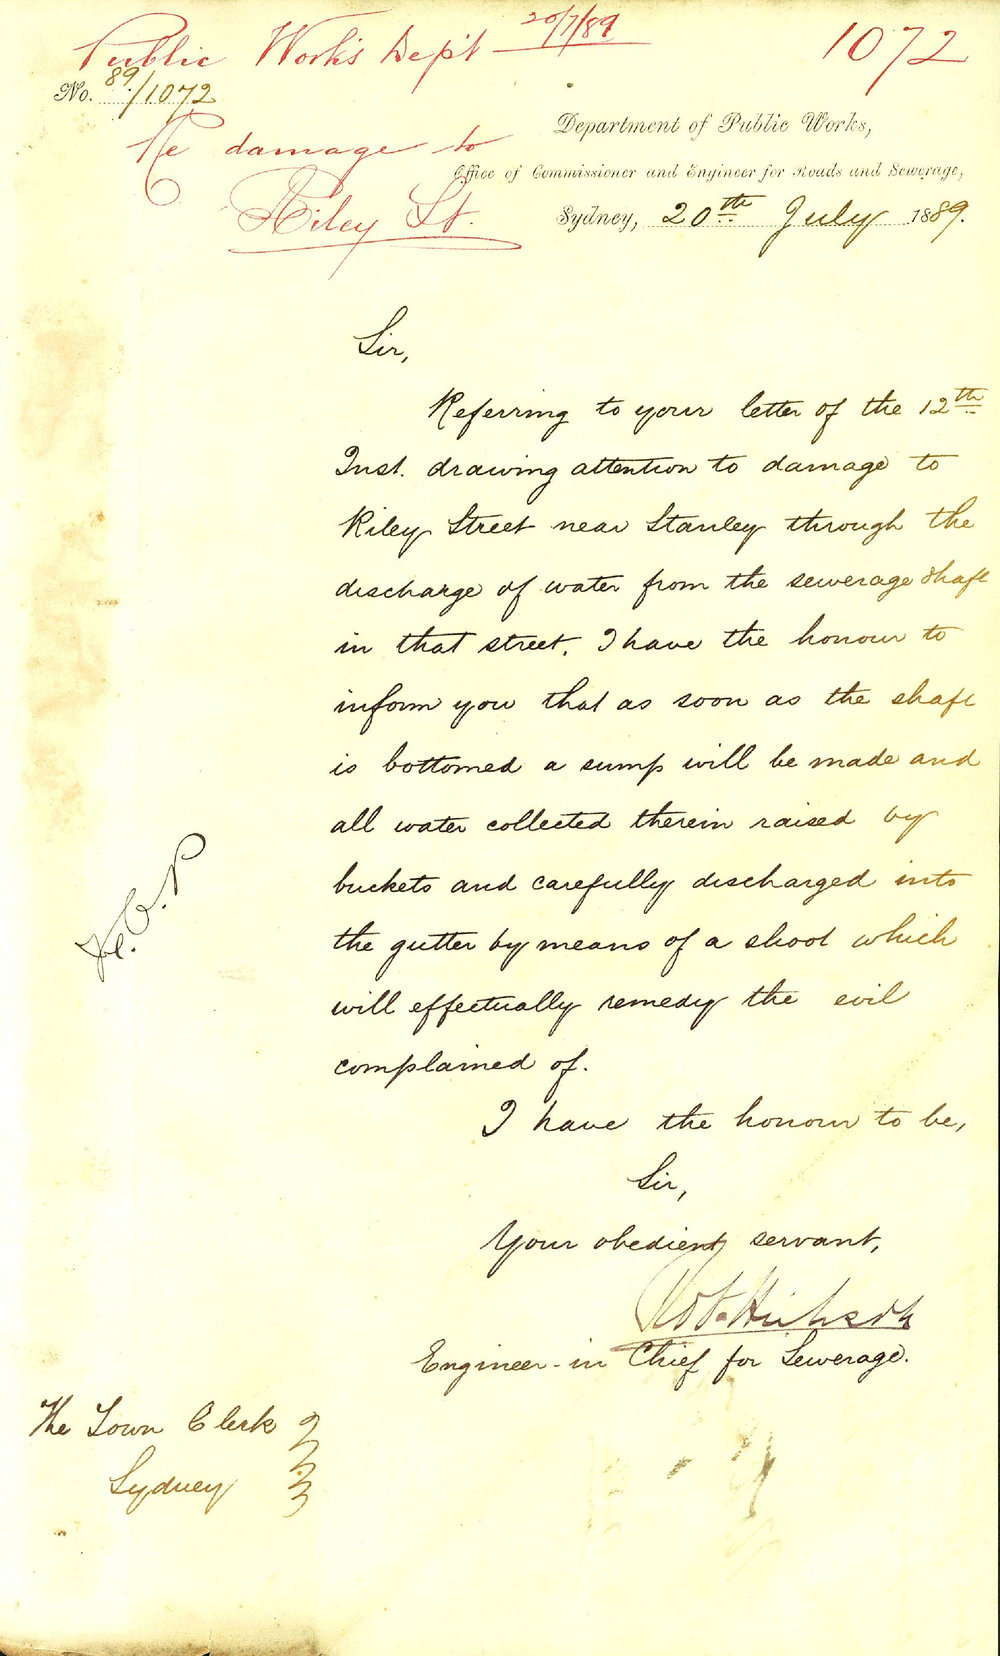 Public Works Dep't 20/7/89
1072
No. 89/1072
Re damage to
Riley St.
Department of Public Works,
Office of Commissioner and Engineer for Roads and Sewerage,
Sydney, 20th July 1889.
Sir,
Referring to your letter of the 12th
Inst. drawing attention to damage to
Riley Street near Stanley through the
discharge of water from the sewerage shaft
in that street. I have the honour to
inform you that as soon as the shaft
is bottomed a sump will be made and
all water collected therein raised by
buckets and carefully discharged into
the gutter by means of a shoot which
will effectually remedy the evil
complained of.
I have the honour to be,
Sir,
Your obedient servant,
Engineer-in Chief for Sewerage.
The Town Clerk
Sydney